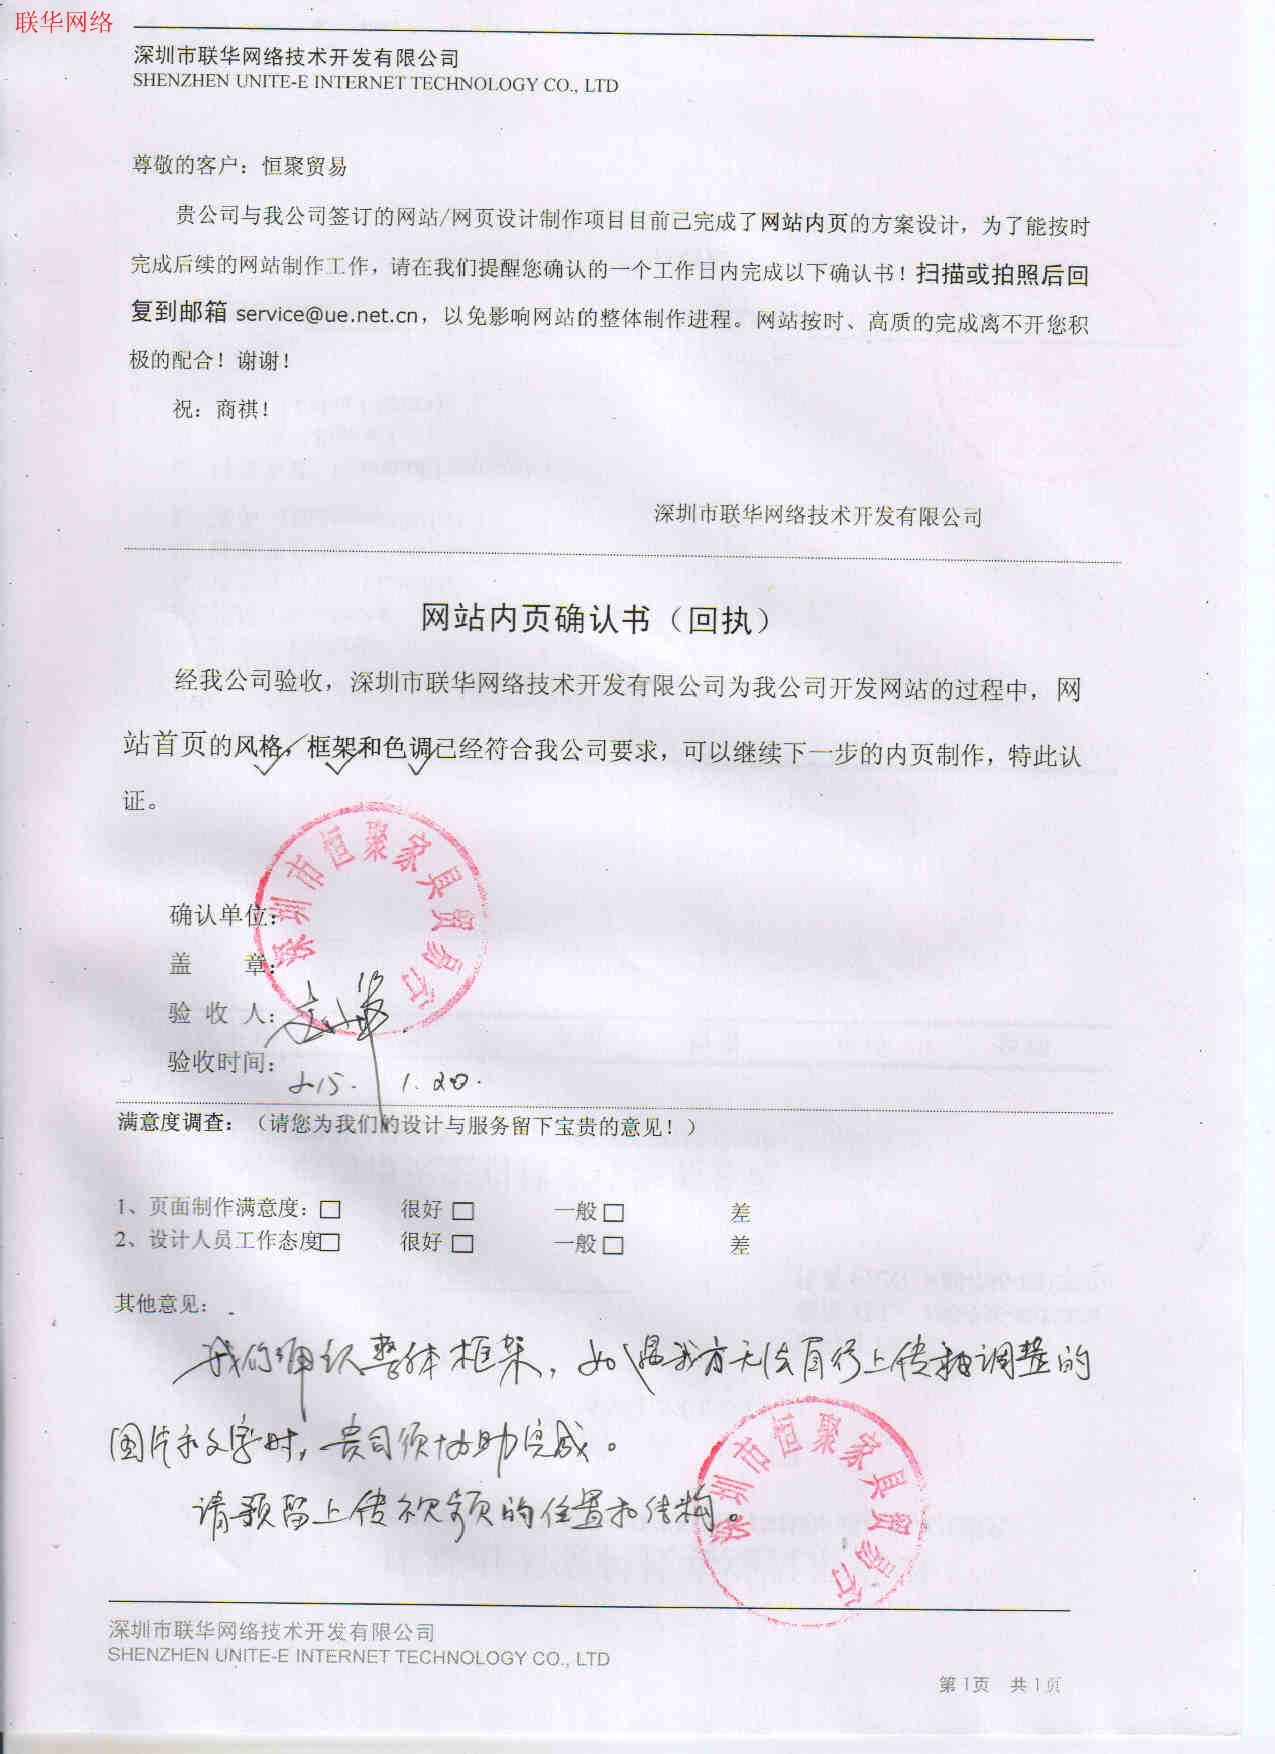 联华网络
深圳市联华网络技术开发有限公司
SHENZHEN UNITE-E INTERNET TECHNOLOGY CO., LTD
尊敬的客户：恒聚贸易
贵公司与我公司签订的网站/网页设计制作项目目前已完成了网站内页的方案设计，为了能按时
完成后续的网站制作工作，请在我们提醒您确认的一个工作日内完成以下确认书！扫描或拍照后回
复到邮箱 service@ue.net.cn，以免影响网站的整体制作进程。网站按时、高质的完成离不开您积
极的配合！谢谢！
祝：商祺！
深圳市联华网络技术开发有限公司
网站内页确认书（回执）
经我公司验收，深圳市联华网络技术开发有限公司为我公司开发网站的过程中，网
站首页的风格，框架和色调已经符合我公司要求，可以继续下一步的内页制作，特此认
证。
深圳市恒聚家具贸易行
确认单位：
盖 章：
验 收 人：
验收时间：
215. 1.20.
满意度调查：（请您为我们的设计与服务留下宝贵的意见！）
1、页面制作满意度：□ 很好 □ 一般 □ 差
2、设计人员工作态度□ 很好 □ 一般 □ 差
其他意见：
我们确认整体框架，如遇我方无法自行上传和调整的
图片和文字时，贵司须协助完成。
请预留上传视频的位置和结构。
深圳市恒聚家具贸易行
深圳市联华网络技术开发有限公司
SHENZHEN UNITE-E INTERNET TECHNOLOGY CO., LTD
第 1页 共 1 页